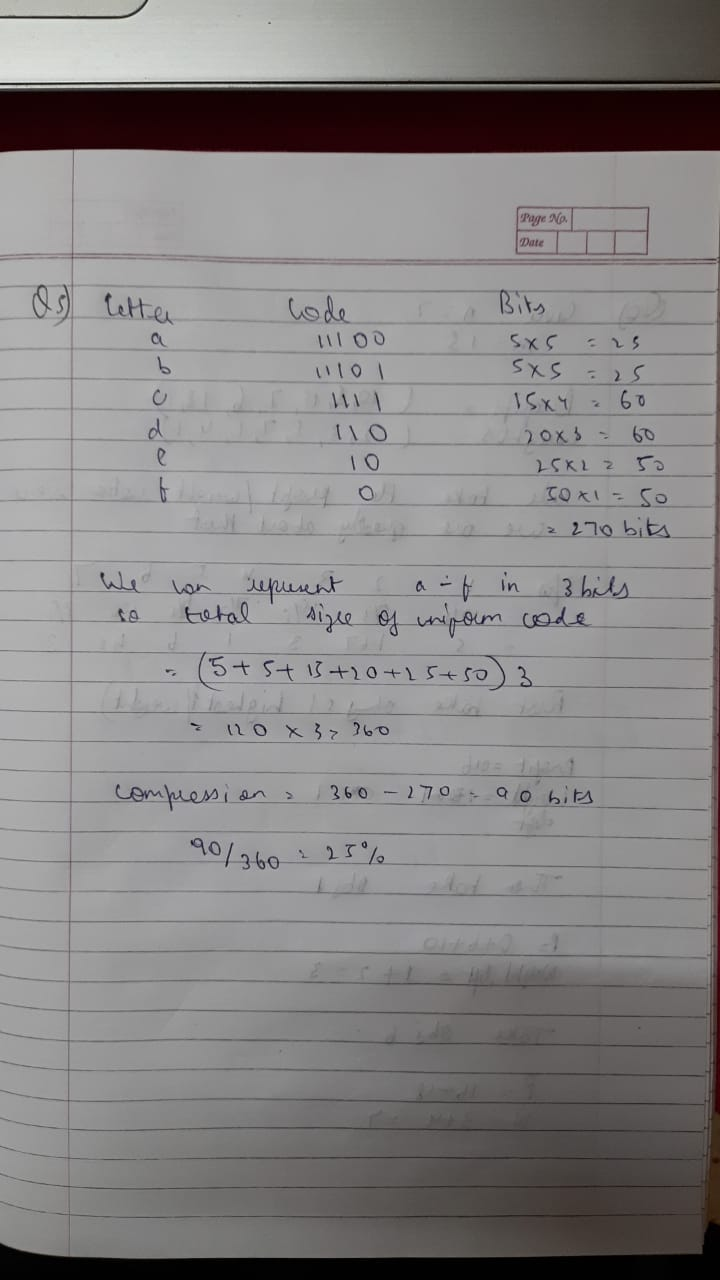 Page No.
Date
Q5) Letter Code Bits
a 11100 5x5 = 25
b 11101 5x5 = 25
c 1111 15x4 = 60
d 110 20x3 = 60
e 10 25x2 = 50
f 0 50x1 = 50
= 270 bits
We can represent a - f in 3 bits
so total size of uniform code
= (5+5+15+20+25+50) 3
= 120 x 3 = 360
Compression = 360 - 270 = 90 bits
90/360 = 25%